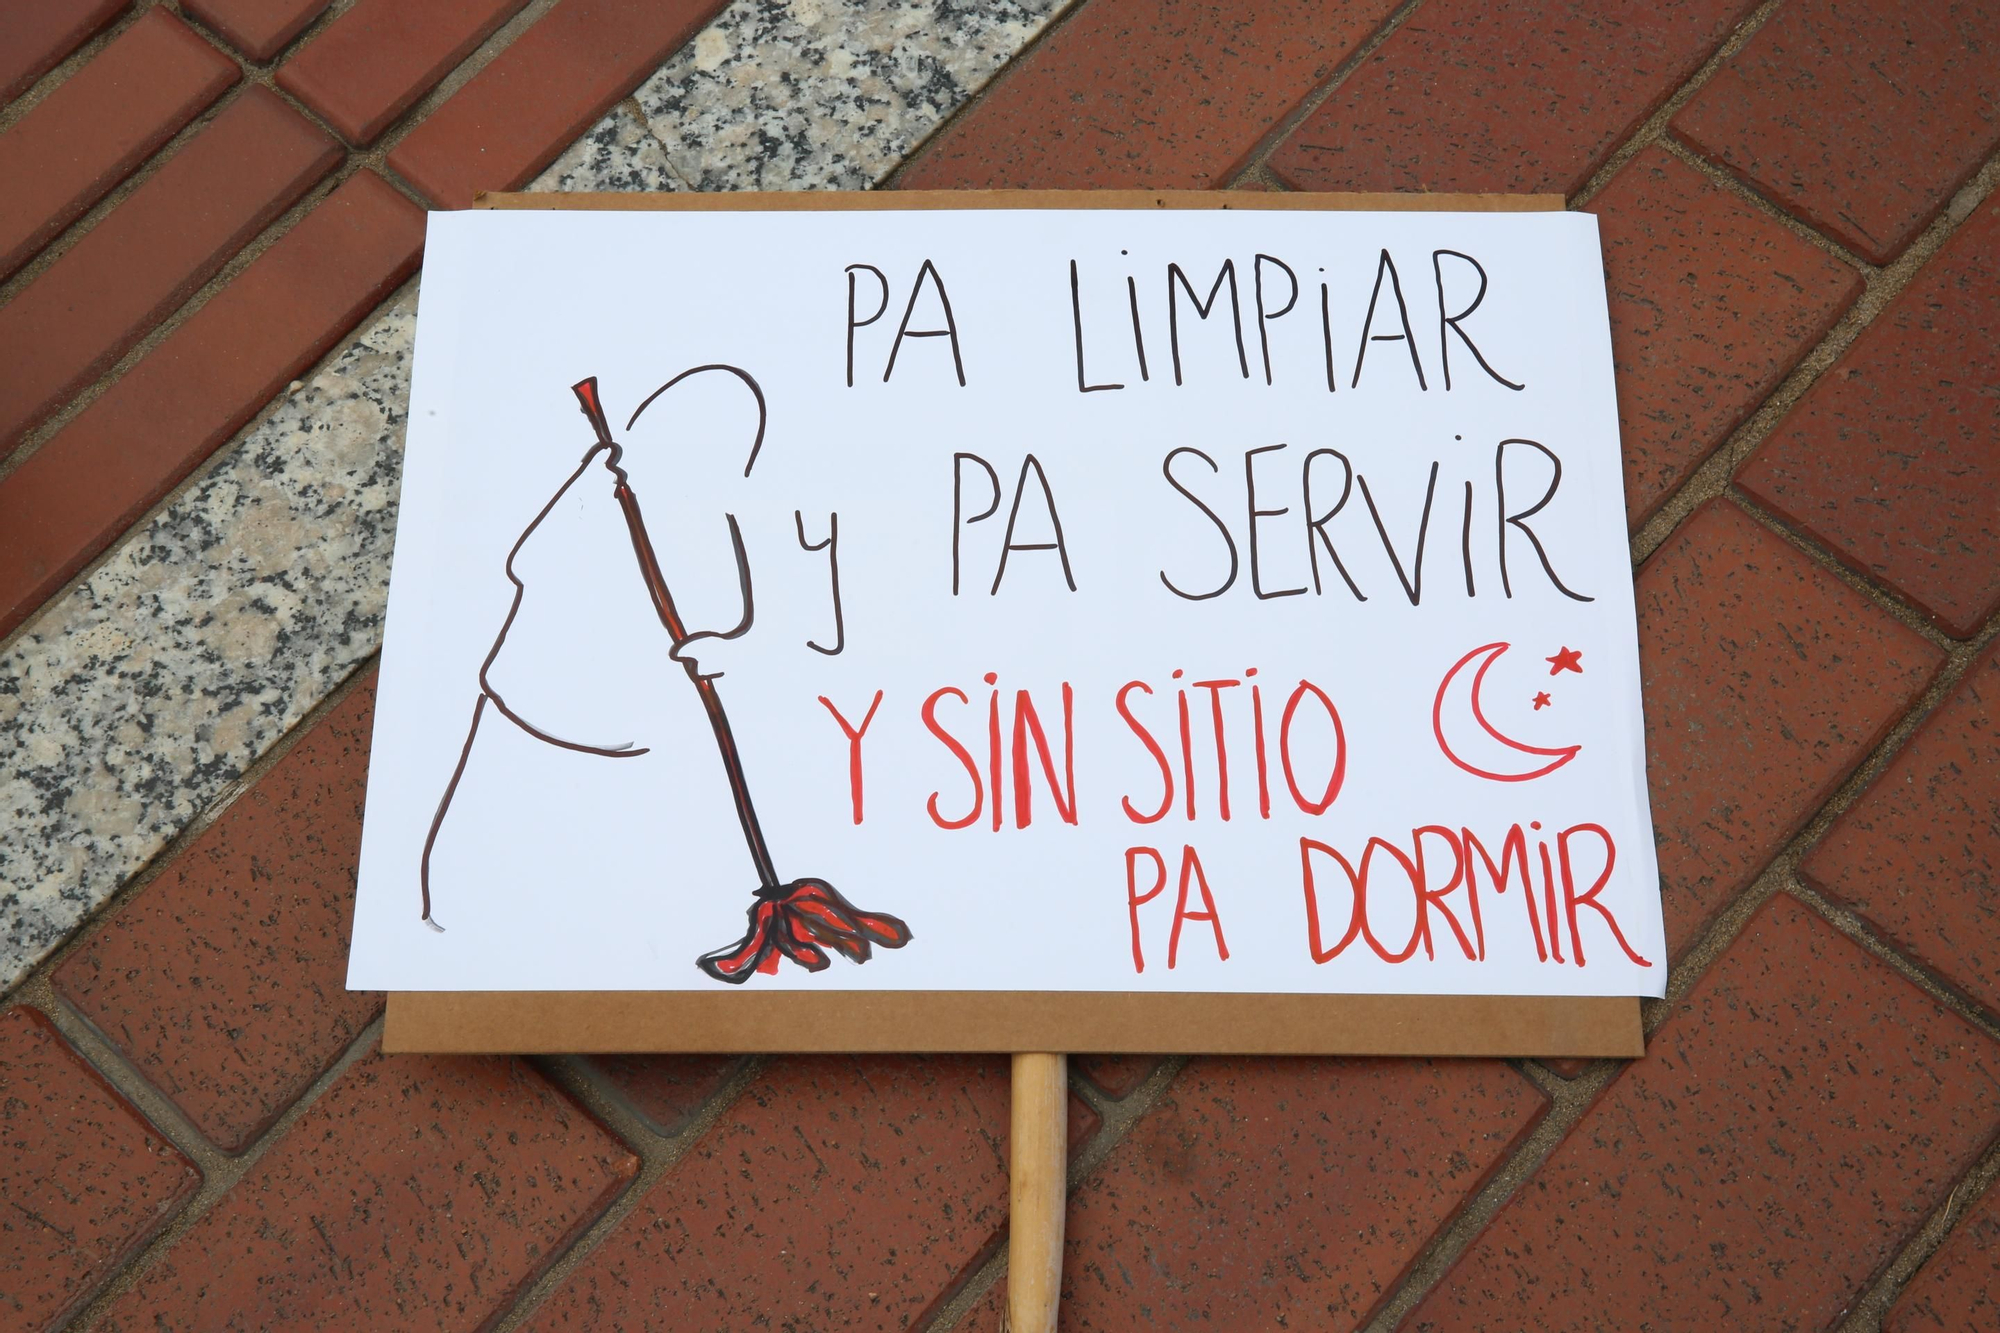 PA LiMPiAR
y PA SERViR
Y SiN SiTiO
PA DORMiR